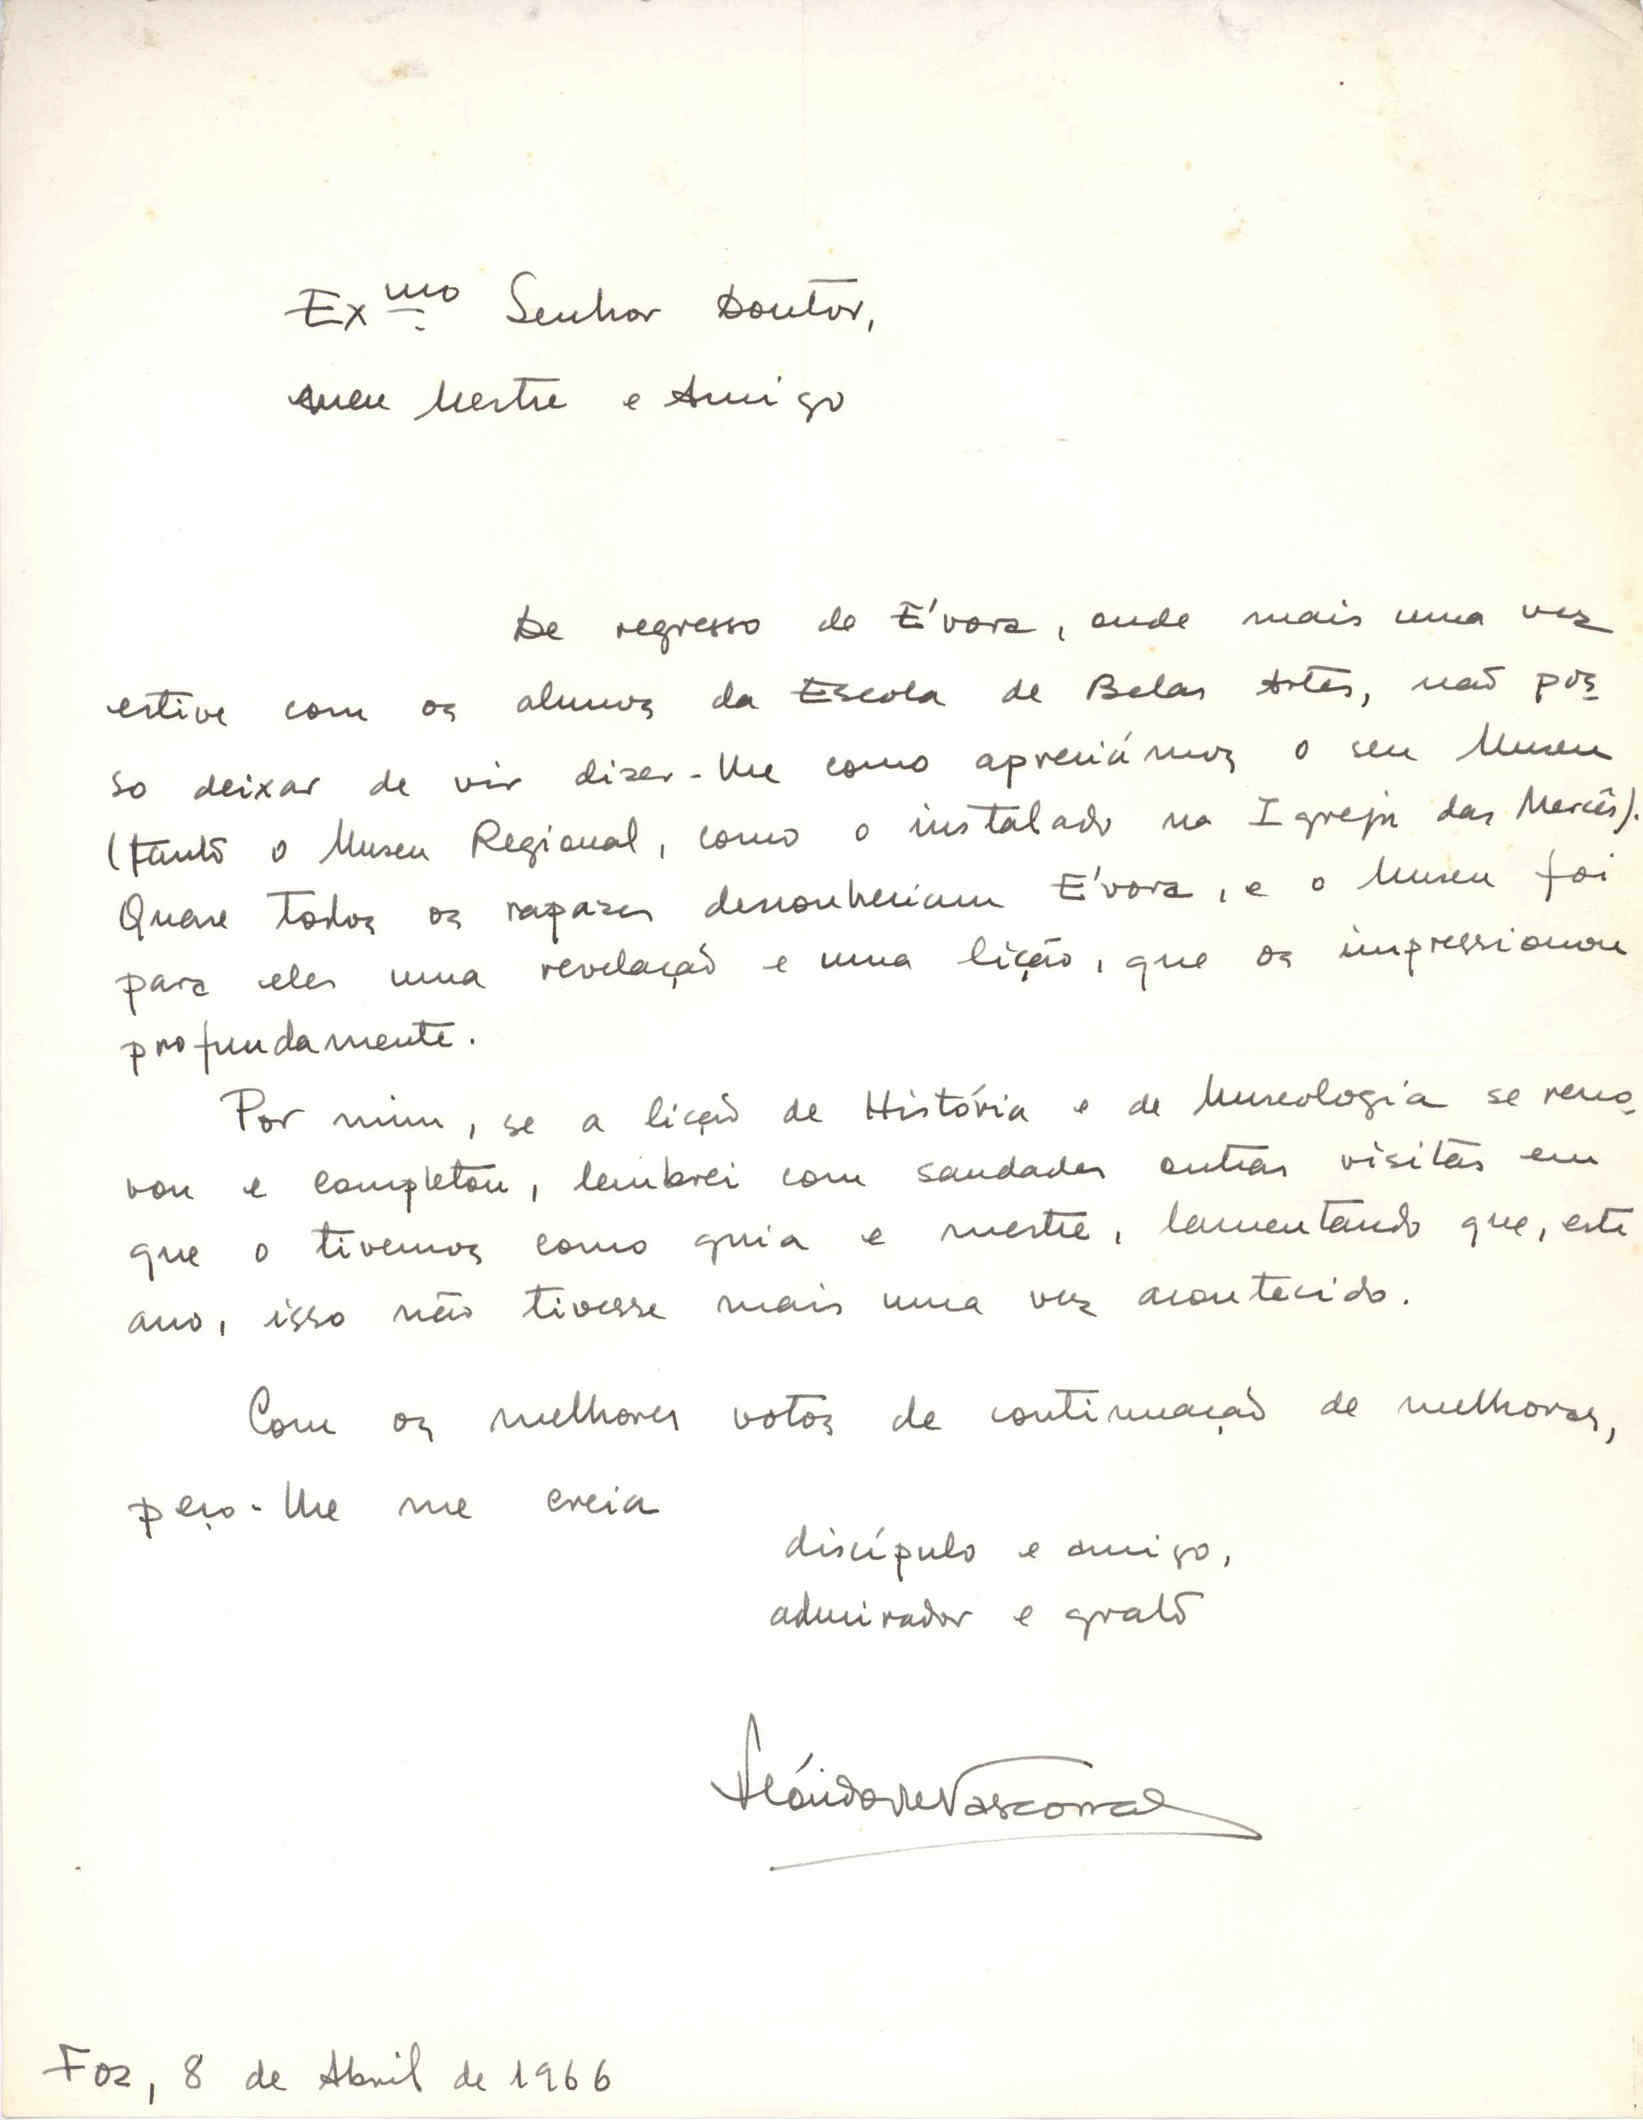 Exmo Senhor Doutor,
meu Mestre e Amigo
De regresso de Évora, onde mais uma vez
estive com os alunos da Escola de Belas Artes, não pos-
so deixar de vir dizer-lhe como apreciámos o seu Museu
(tanto o Museu Regional, como o instalado na Igreja das Mercês).
Quase todos os rapazes desconheciam Évora, e o Museu foi
para eles uma revelação e uma lição, que os impressionou
profundamente.
Por mim, se a lição de História e de Museologia se reno-
vou e completou, lembrei com saudades outras visitas em
que o tivemos como guia e mestre, lamentando que, este
ano, isso não tivesse mais uma vez acontecido.
Com os melhores votos de continuação de melhoras,
peço-lhe me creia
discípulo e amigo,
admirador e grato
Flórido de Vasconcelos
Foz, 8 de Abril de 1966